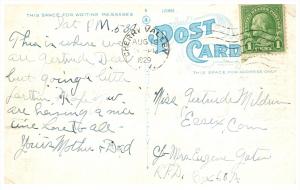 THIS SPACE FOR WRITING MESSAGES
Sat. P.M.
This is where we
are Gertrude Dear
but going a little
farther. Hope
are having a nice
time Love to all
Your Mother & Dad
CHERRY VALLEY
AUG
1929
POST
CARD
1
THIS SPACE FOR ADDRESS ONLY
Miss Gertrude
Essex,
Conn
c/o Mrs Eugene
R.F.D.